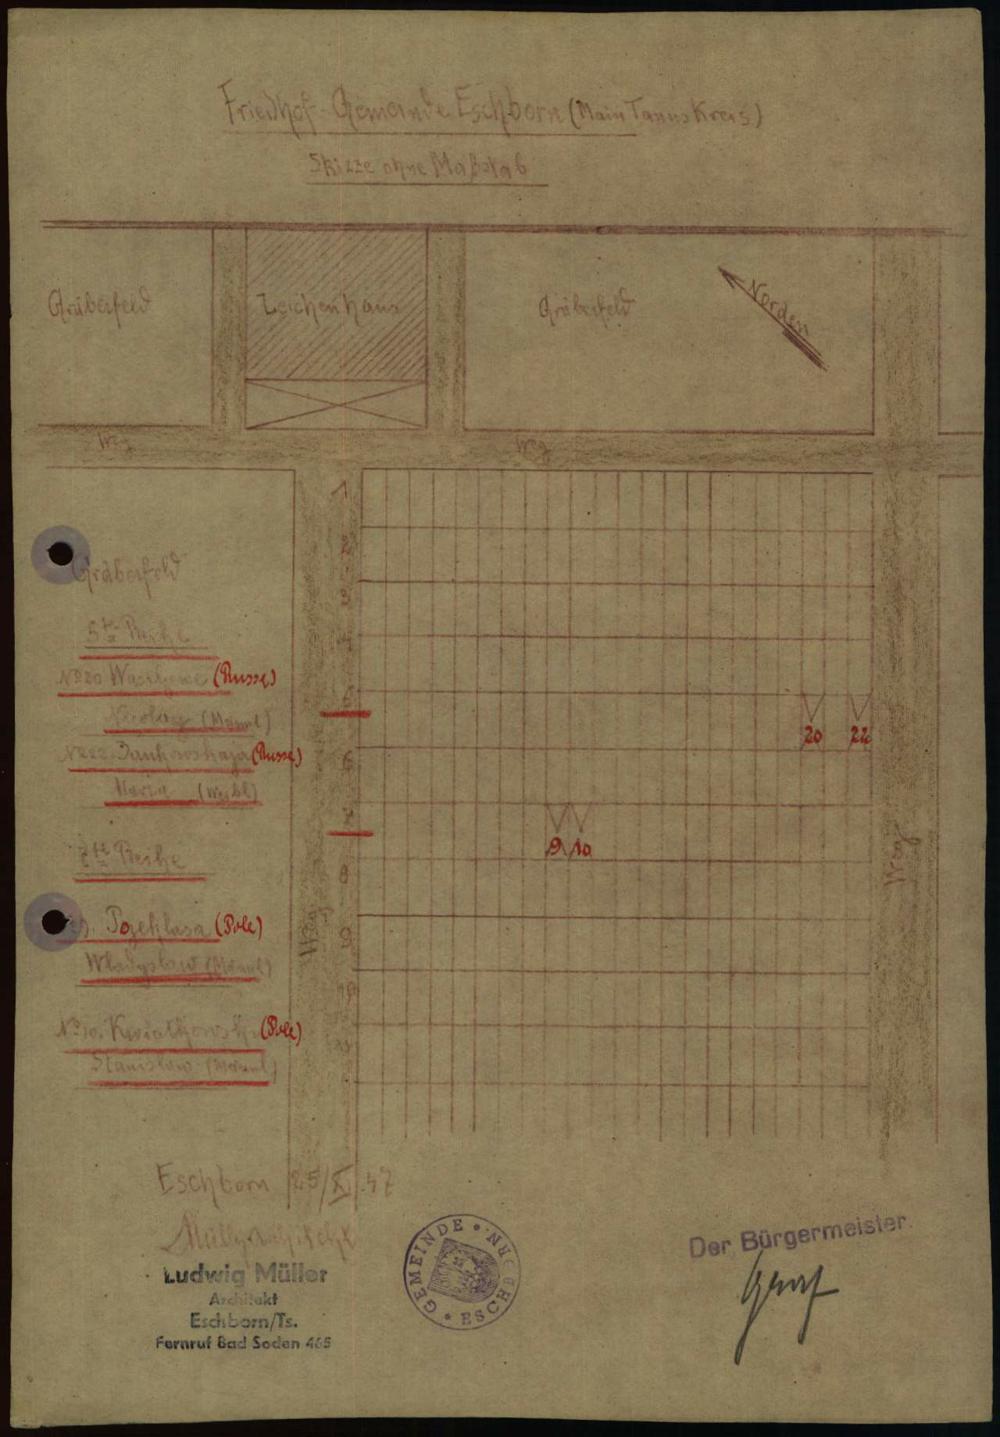 Friedhof-Gemeinde Eschborn (Main Taunus Kreis)
Skizze ohne Maßstab
Gräberfeld
Leichenhaus
Gräberfeld
Norden
Weg
Weg
1
2
3
4
Gräberfeld
5te Reihe
No 20 (Russe)
Nicolay (Männl)
5
20 22
No 22. (Russe)
6
Maria (Weibl)
7
9 10
7te Reihe
8
(Pole)
Wladyslaw (Männl)
9
Weg
Weg
10
No 10. (Pole)
Stanislaw (Männl)
11
Eschborn 25/XI.47
Ludwig Müller
Architekt
Eschborn/Ts.
Fernruf Bad Soden 465
GEMEINDE ESCHBORN
Der Bürgermeister.